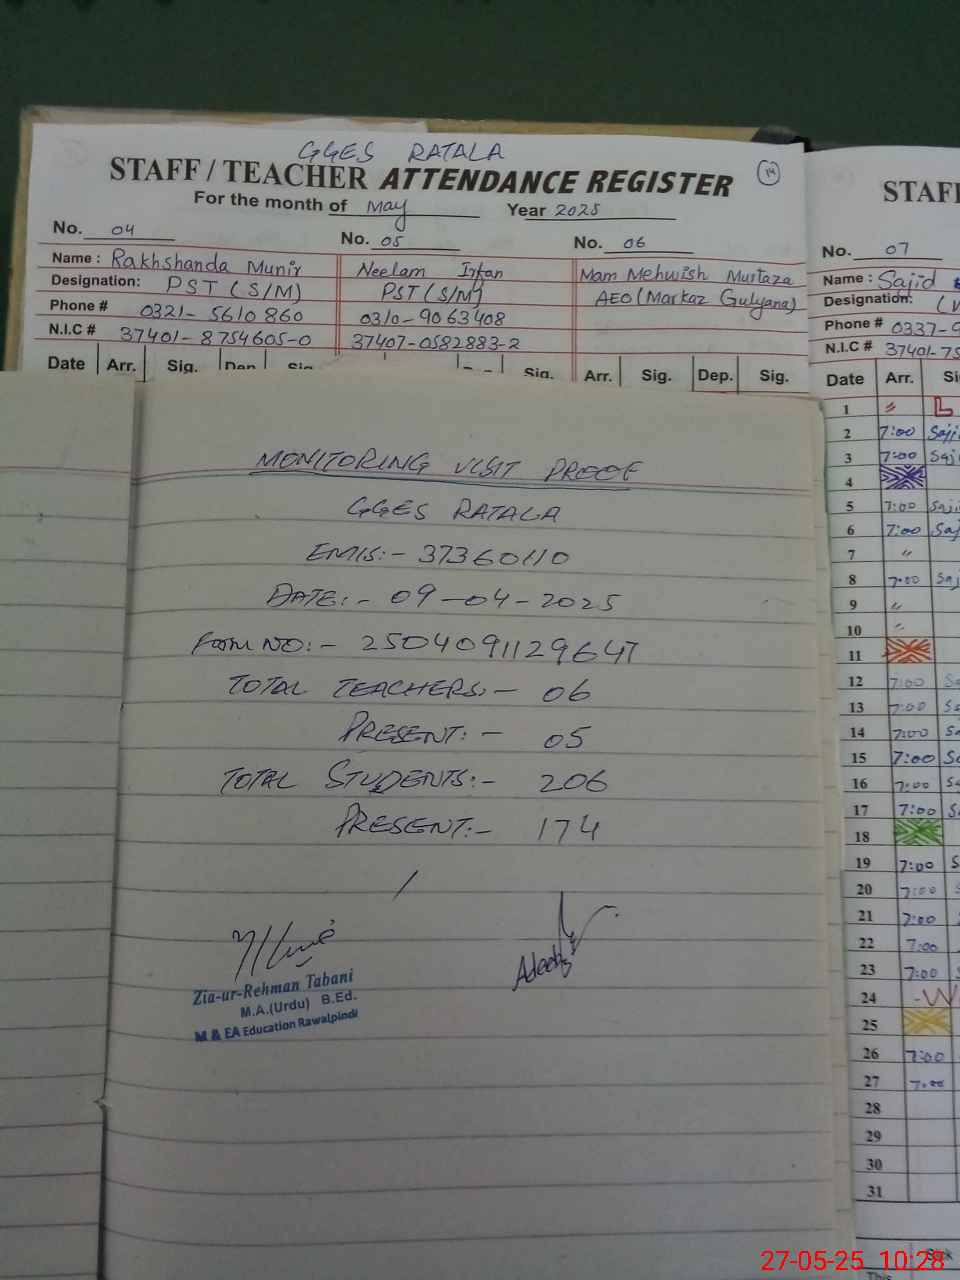 GGES RATALA
STAFF / TEACHER ATTENDANCE REGISTER
14
For the month of May Year 2025
No. 04 No. 05 No. 06
Name : Rakhshanda Munir Neelam Irfan Mam Mehwish Murtaza
Designation: PST (S/M) PST (S/M) AEO (Markaz Gulyana)
Phone # 0321-5610860 0310-9063408
N.I.C # 37401-8754605-0 37407-0582883-2
Date Arr. Sig. Dep. Sig. Sig. Arr. Sig. Dep. Sig.
MONITORING VISIT PROOF
GGES RATALA
EMIS:- 37360110
DATE:- 09-04-2025
FORM NO:- 2504091129647
TOTAL TEACHERS:- 06
PRESENT:- 05
TOTAL STUDENTS:- 206
PRESENT:- 174
Zia-ur-Rehman Tabani
M.A.(Urdu) B.Ed.
M & EA Education Rawalpindi
STAFF
No. 07
Name : Sajid
Designation:
Phone # 0337-9
N.I.C # 37401-75
Date Arr. Si
1 〃 L
2 7:00 Saji
3 7:00 Saj
4
5 7:00 Saji
6 7:00 Saj
7 〃
8 7:00 Saj
9 〃
10 〃
11
12 7:00 Sa
13 7:00 Sa
14 7:00 Sa
15 7:00 Sa
16 7:00 Sa
17 7:00 S
18
19 7:00 S
20 7:00 S
21 7:00
22 7:00
23 7:00 S
24 -W
25
26 7:00
27 7:00
28
29
30
31
27-05-25 10:28